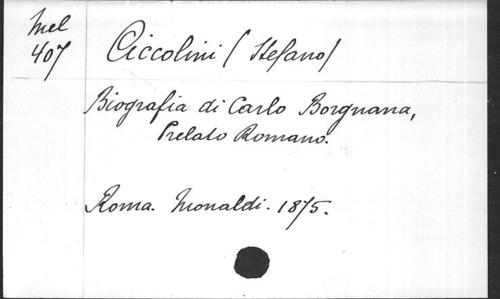 Mel
407
Ciccolini (Stefano)
Biografia di Carlo Borgnana,
Prelato Romano.
Roma. Monaldi. 1875.